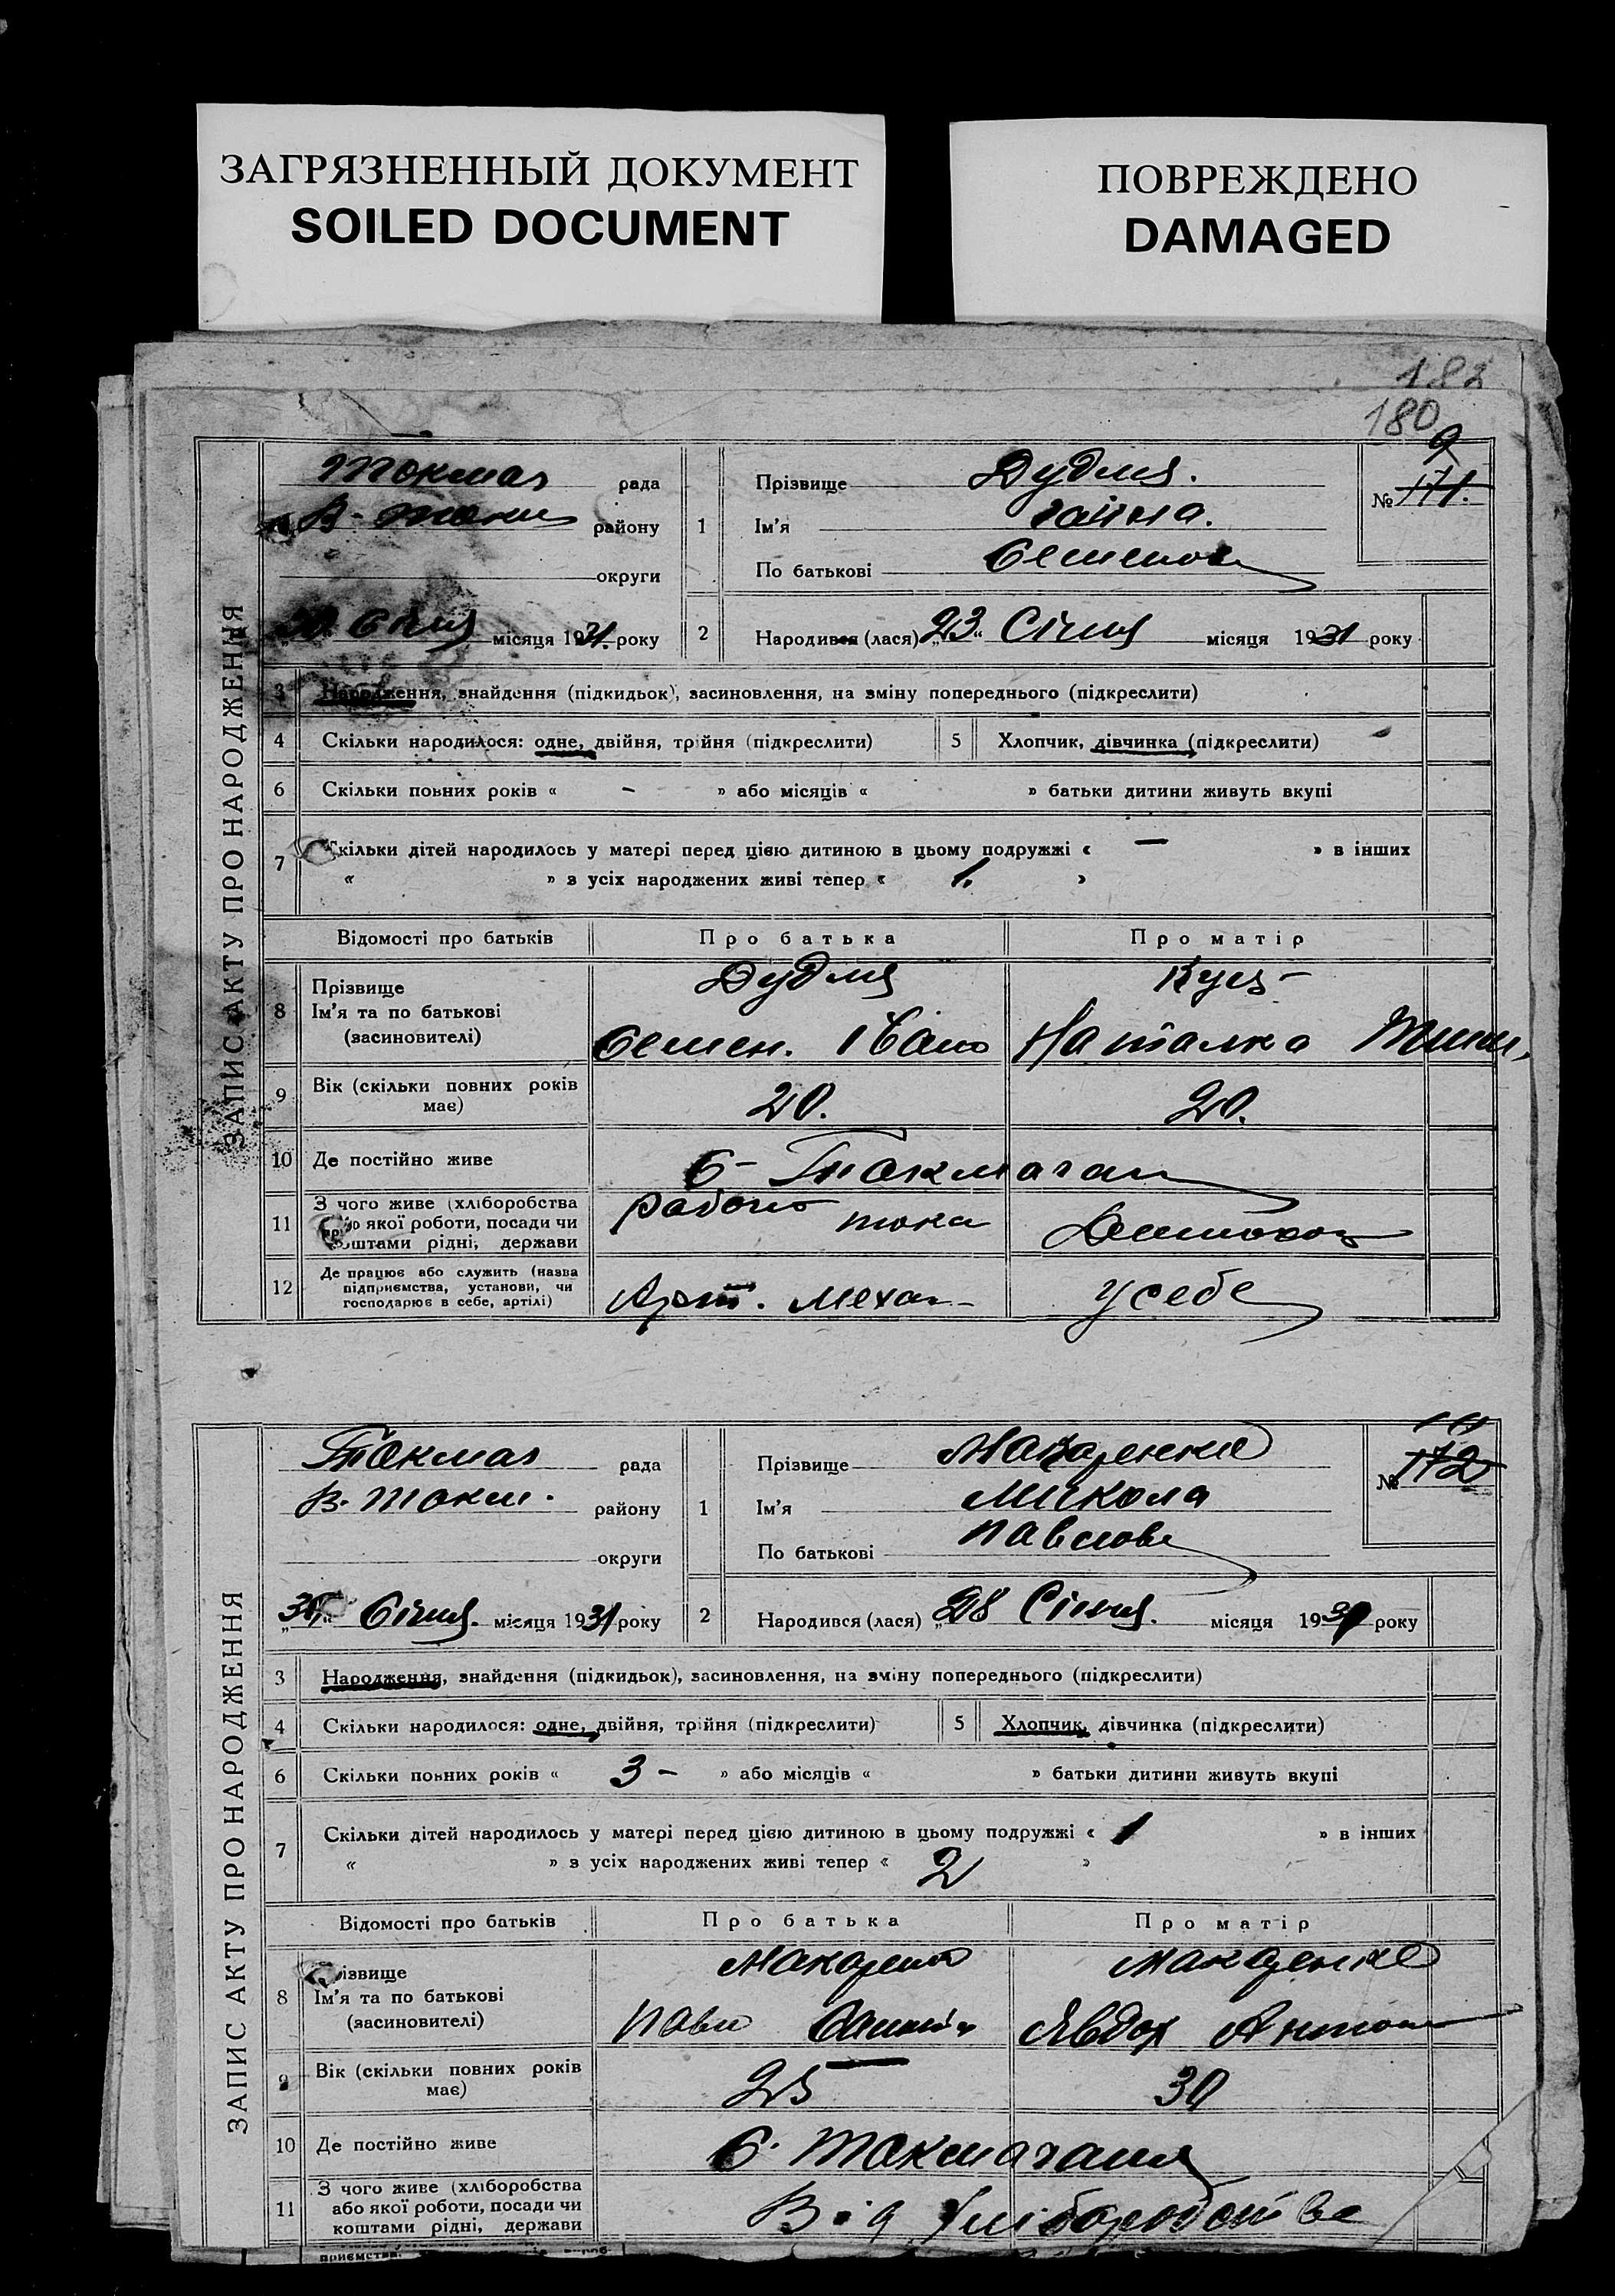 ЗАГРЯЗНЕННЫЙ ДОКУМЕНТ
SOILED DOCUMENT
ПОВРЕЖДЕНО
DAMAGED
182
180
ЗАПИС АКТУ ПРО НАРОДЖЕННЯ
Токмач рада
В- Токм району
округи
Січня місяця 1931. року
1 Прізвище Дудля.
Ім'я Ганна.
По батькові Семенов
№ 171. 9
2 Народився (лася) „23“ Січня місяця 1931 року
3 Народження, знайдення (підкидьок), засиновлення, на зміну попереднього (підкреслити)
4 Скільки народилося: одне, двійня, трійня (підкреслити)
5 Хлопчик, дівчинка (підкреслити)
6 Скільки повних років « – » або місяців « » батьки дитини живуть вкупі
7 Скільки дітей народилось у матері перед цією дитиною в цьому подружжі « – » в інших
« » з усіх народжених живі тепер « 1. »
Відомості про батьків Про батька Про матір
8 Прізвище
Ім'я та по батькові
(засиновителі)
Дудля
Семен. Іван
Куц-
Наталка
9 Вік (скільки повних років має) 20. 20.
10 Де постійно живе С- Токмачан
11 З чого живе (хліборобства
або якої роботи, посади чи
коштами рідні, держави
12 Де працює або служить (назва
підприємства, установи, чи
господарює в себе, артілі)
Арт. Механ-
у себе
ЗАПИС АКТУ ПРО НАРОДЖЕННЯ
Токмач рада
В. Токм. району
округи
Січня. місяця 1931 року
1 Прізвище Макаренко
Ім'я Микола
По батькові Павлов
№ 172
2 Народився (лася) „28 Січня. місяця 1931 року
3 Народження, знайдення (підкидьок), засиновлення, на зміну попереднього (підкреслити)
4 Скільки народилося: одне, двійня, трійня (підкреслити)
5 Хлопчик, дівчинка (підкреслити)
6 Скільки повних років « 3 – » або місяців « » батьки дитини живуть вкупі
7 Скільки дітей народилось у матері перед цією дитиною в цьому подружжі « 1 » в інших
« » з усіх народжених живі тепер « 2 »
Відомості про батьків Про батька Про матір
8 Прізвище
Ім'я та по батькові
(засиновителі)
Макарен
Павл
Макаренко
Явдох Антон
9 Вік (скільки повних років має) 25 30
10 Де постійно живе С. Токмачани
11 З чого живе (хліборобства
або якої роботи, посади чи
коштами рідні, держави
Від хліборобства